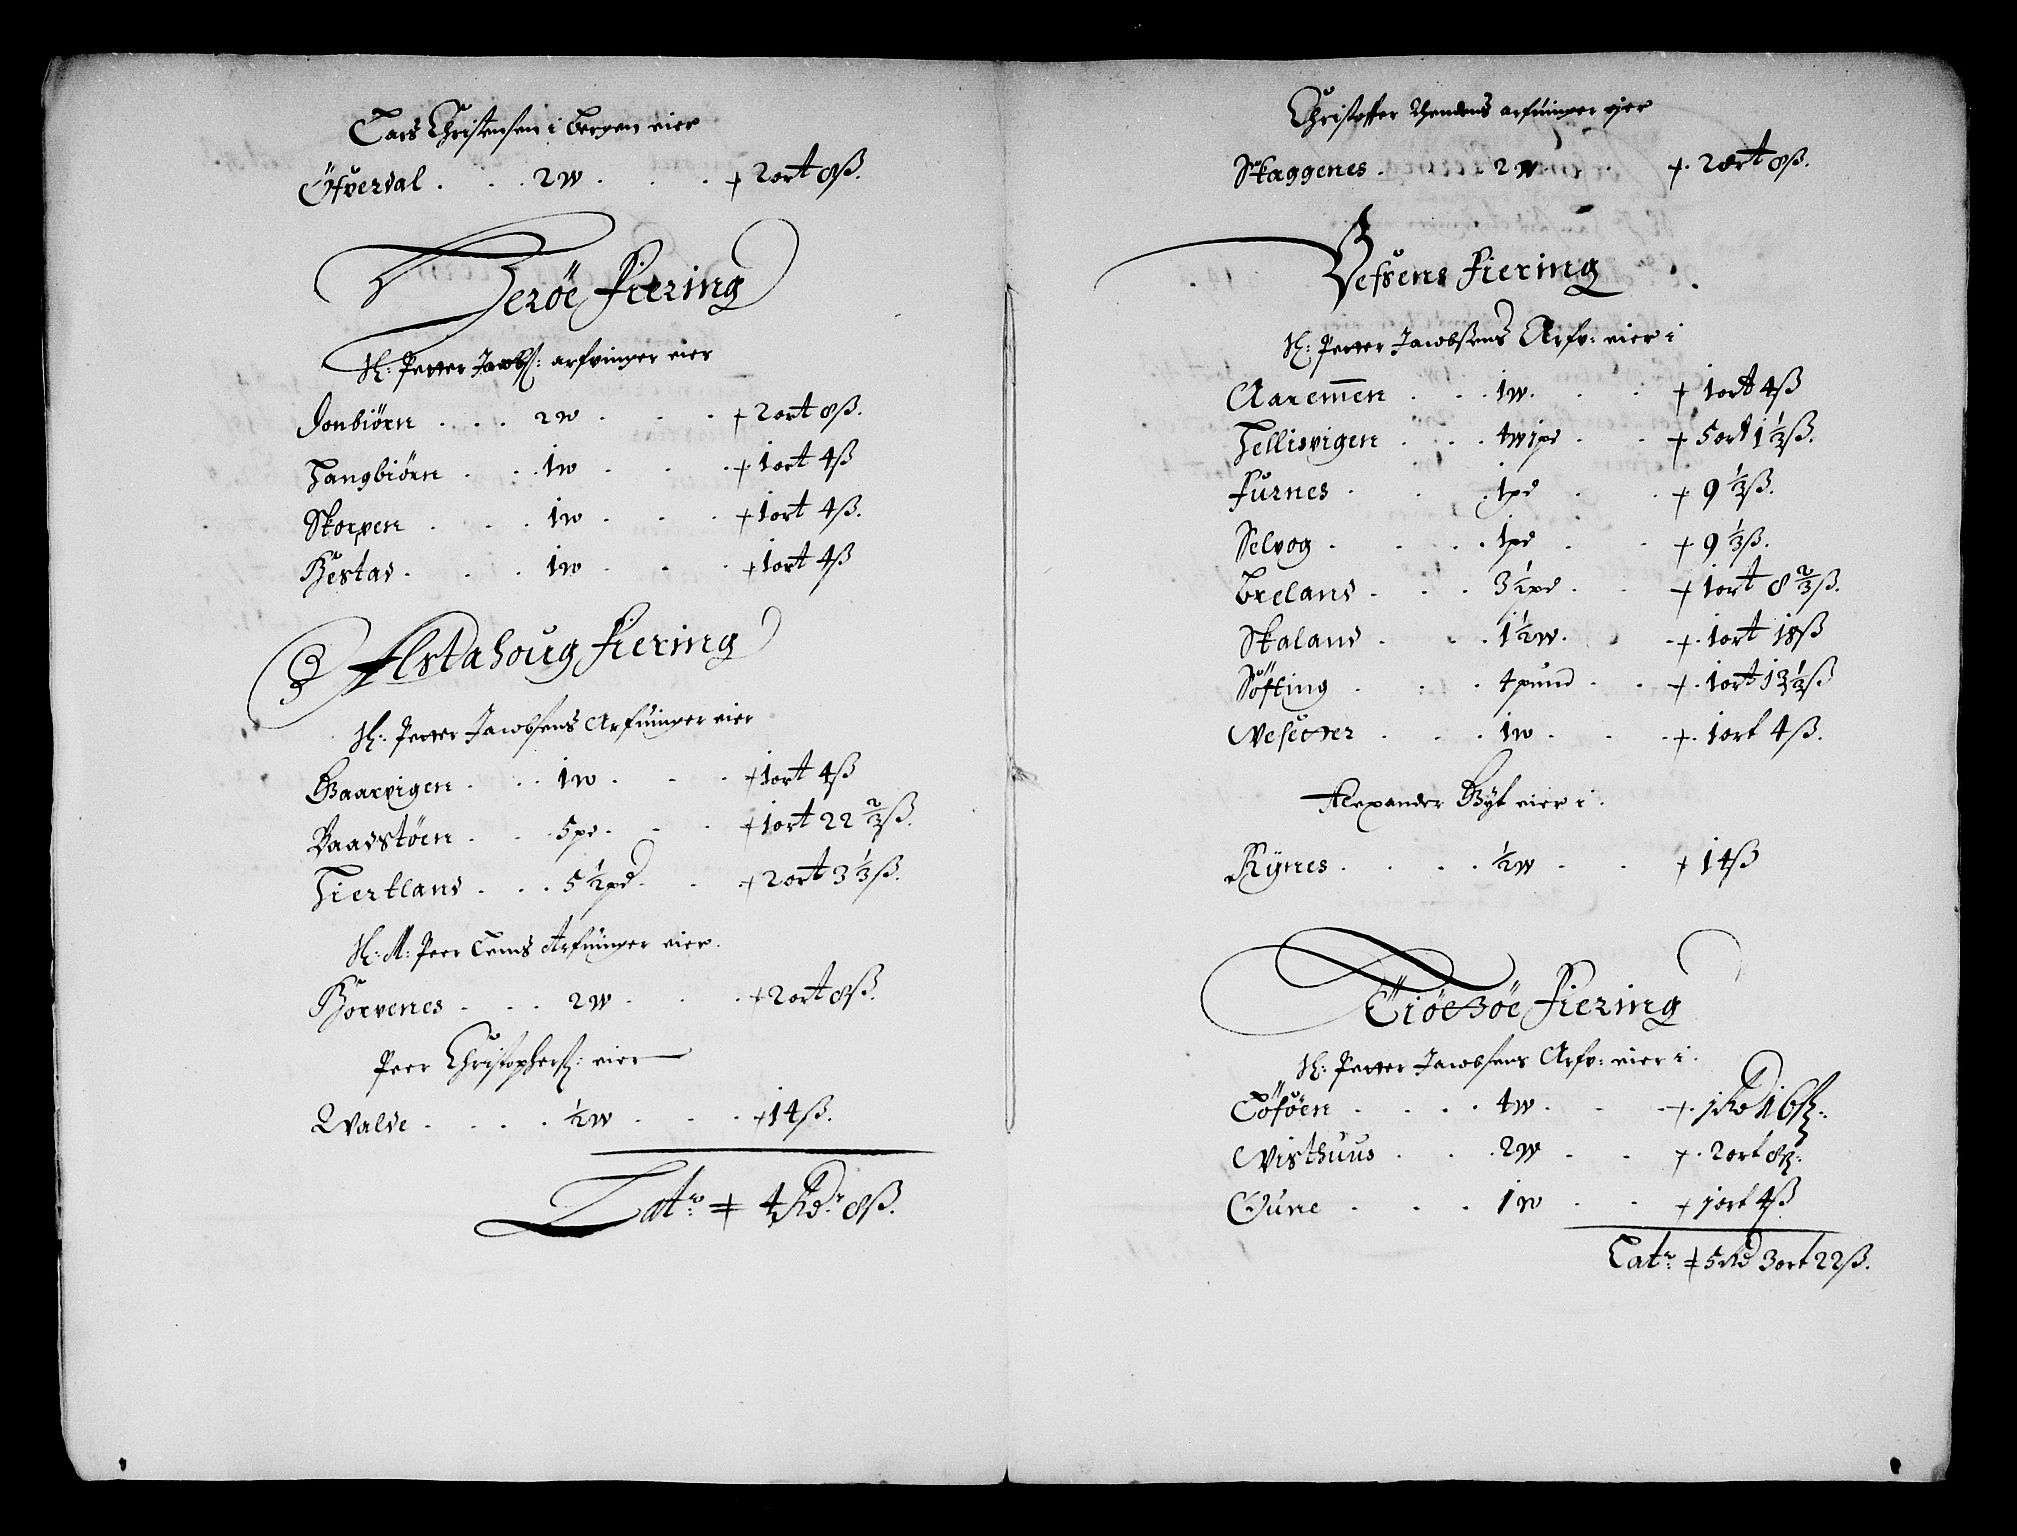 Lars Christensen i Bergen eier
Öfverdal . . . 2 w . . . + 2 ort 8 ß.
Herøe Fiering
H: Petter Jacobs: arfvinger eier
Jonbiörn . . . 2 w . . . + 2 ort 8 ß.
Tangbiörn . . . 1 w . . . + 1 ort 4 ß
Skorpen . . . 1 w . . . + 1 ort 4 ß.
Bestad . . . 1 w . . . + 1 ort 4 ß
Alstahoug Fiering
H: Petter Jacobsens Arfuinger eier
Gaarvigen . . . 1 w . . . + 1 ort 4 ß
Baadstöen . . . 5 pd . . . + 1 ort 22 2/3 ß.
Hiertland . . . 5 1/2 pd . . . + 2 ort 3 1/3 ß.
H: M: Peer Arfuinger eier.
Horvenes . . . 2 w . . . + 2 ort 8 ß.
Peer Christophers: eier
Qvalde . . . 1/2 w . . . + 14 ß.
Lat: = 4 Rdr 8 ß.
Christoffer arfuinger ejer
Skaggenes . . . 2 w . . . + 2 ort 8 ß.
Vefsens Fiering
H: Petter Jacobsens Arfv: eier i
Aaremmen . . . 1 w . . . + 1 ort 4 ß
Hellisvigen . . . 4 w 1 pd . . . + 5 ort 1 1/3 ß.
Furnes . . . 1 pd . . . + 9 1/3 ß.
Selvog . . . 1 pd . . . + 9 1/3 ß.
Breland . . . 3 1/2 pd . . . + 1 ort 8 2/3 ß.
Skaland . . . 1 1/2 w . . . + 1 ort 18 ß
Söfting . . . 4 pund . . . + 1 ort 13 1/3 ß
. . . 1 w . . . + 1 ort 4 ß.
Alexander eier i.
Rynes . . . 1/2 w . . . + 14 ß
Tiötöe Fiering
H: Petter Jacobsens Arfv: eier i.
Töföen . . . 4 w . . . + 1 Rd 16 ß:
Visthuus . . . 2 w . . . + 2 ort 8 ß:
. . . 1 w . . . + 1 ort 4 ß
Lat: = 5 Rd 3 ort 22 ß.